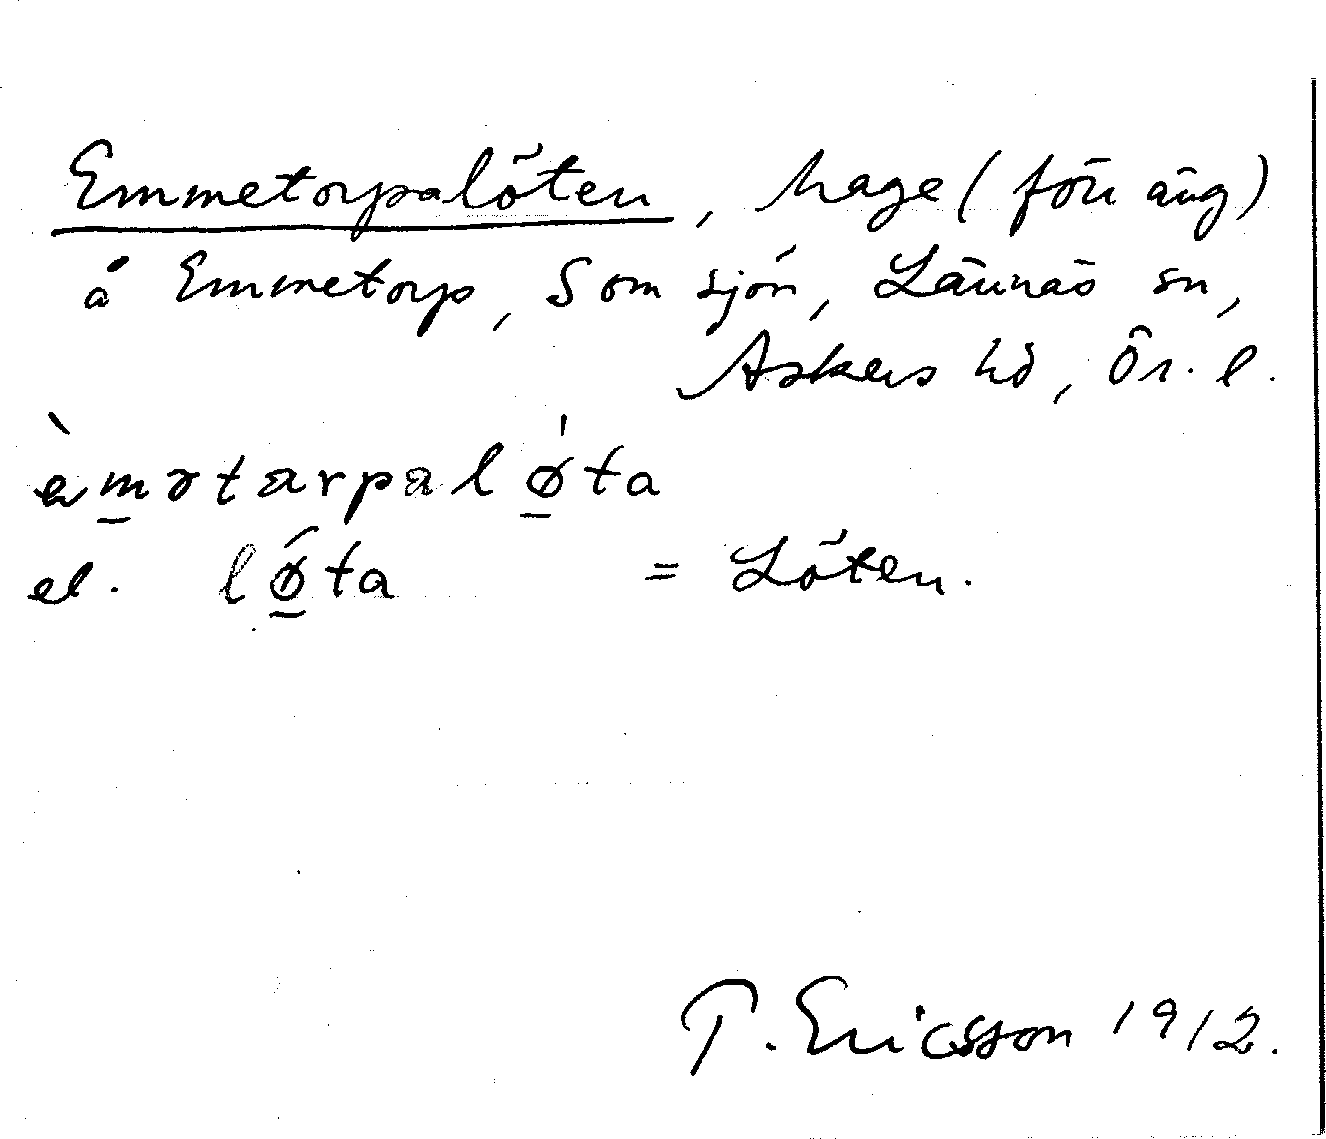 Emmetorpalöten, hage (förr äng)
å Emmetorp, Somsjön, Lännäs sn,
Askers hd, Ör. l.
èmətarpalø̀ta
el. lǿta = Löten.
T. Ericsson 1912.